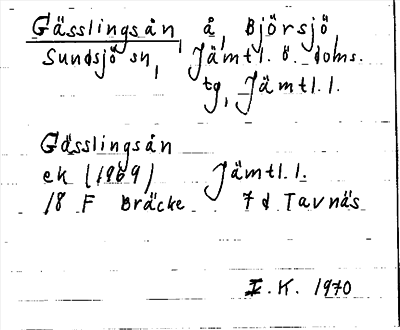 Gässlingsån, å, Björsjö,
Sundsjö sn, Jämtl. ö. doms.
tg, Jämtl. l.
Gässlingsån
ek (1969) Jämtl. l.
18 F Bräcke 7 d Tavnäs
I. K. 1970